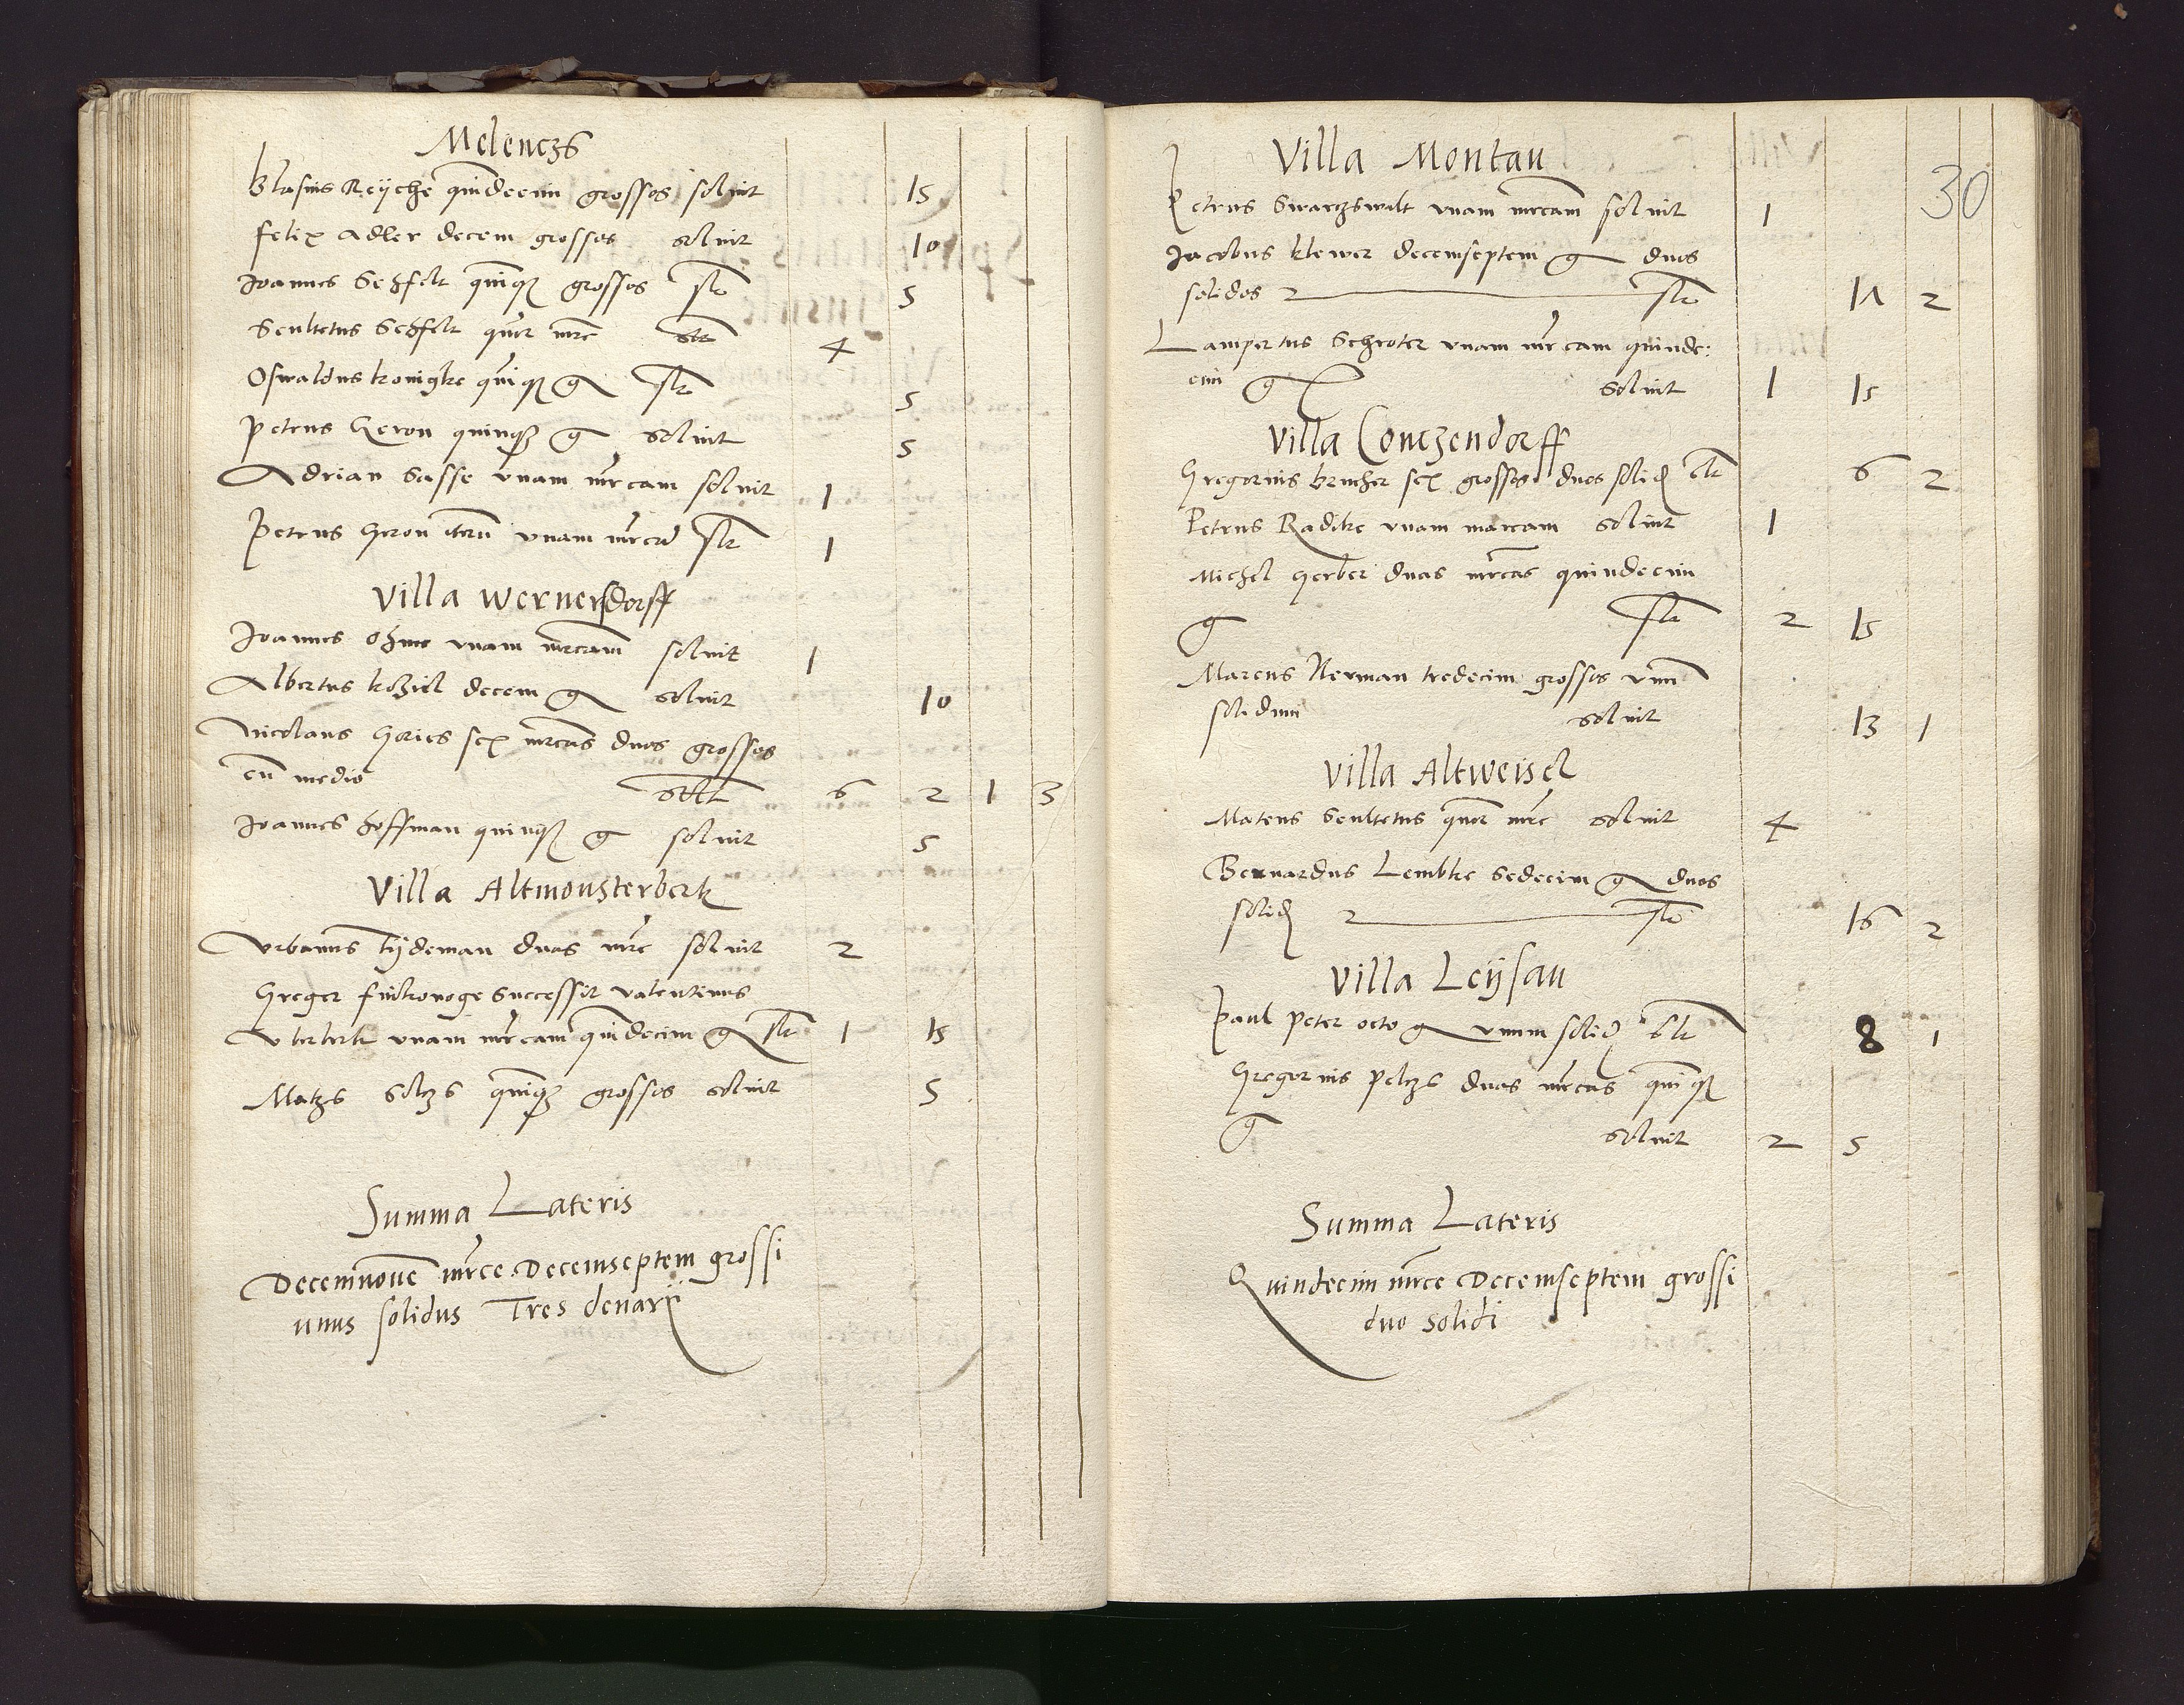 Melenczs
Blasius Reÿche quindecim grossos soluit 15
Felix Adler decem grossos soluit 10
Joannes Sehfelt quinqȝ grossos slt 5
Scultetus Sehfelt qtuor mrc slt 4
Oswaldus konigke quinqȝ g slt 5
Petrus Geron quinqȝ g soluit 5
Adrian Sasse vnam mrcam soluit 1
Petrus Geron iterū vnam mrcā slt 1
Villa Wernersdorff
Joannes Ohme vnam mrcam soluit 1
Albertus koziel decem g soluit 10
Nicolaus Gories sex mrcas duos grossos
cū medio soluit 6 2 1 3
Joannes Hoffman quinqȝ g soluit 5
Villa Altmonsterberk
Vrbanus Tÿdeman duas mrc soluit 2
Greger successit valentinus
vnam mrcam quindecim g slt 1 15
Matzs Soltzs quinqȝ grossos soluit 5
Summa Lateris
Decemnouē mrce Decemseptem grossi
unus solidus Tres denarij
30
Villa Montau
Petrus Swartzswalt vnam mrcam soluit 1
Jacobus klewer decemseptem g duos
solidos 2 slt 17 2
Lampertus Schroter vnam mrcam quinde:
cim g soluit 1 15
Villa Conczendorff
Gregorius Brucher sex grossos duos solid slt 6 2
Petrus Radtke vnam marcam soluit 1
Michel Gerber duas mrcas quindecim
g slt 2 15
Marcus Nerman tredecim grossos vnū
solidum soluit 13 1
Villa Altweisel
Mateus Scultetus qtuor mrc soluit 4
Bernardus Lembke Sedecim g duos
solid 2 slt 16 2
Villa Leÿsau
Paul Peter octo g vnum solid slt 8 1
Gregorius Peltzs duas mrcas quinqȝ
g soluit 2 5
Summa Lateris
Quindecim mrce Decemseptem grossi
duo solidi